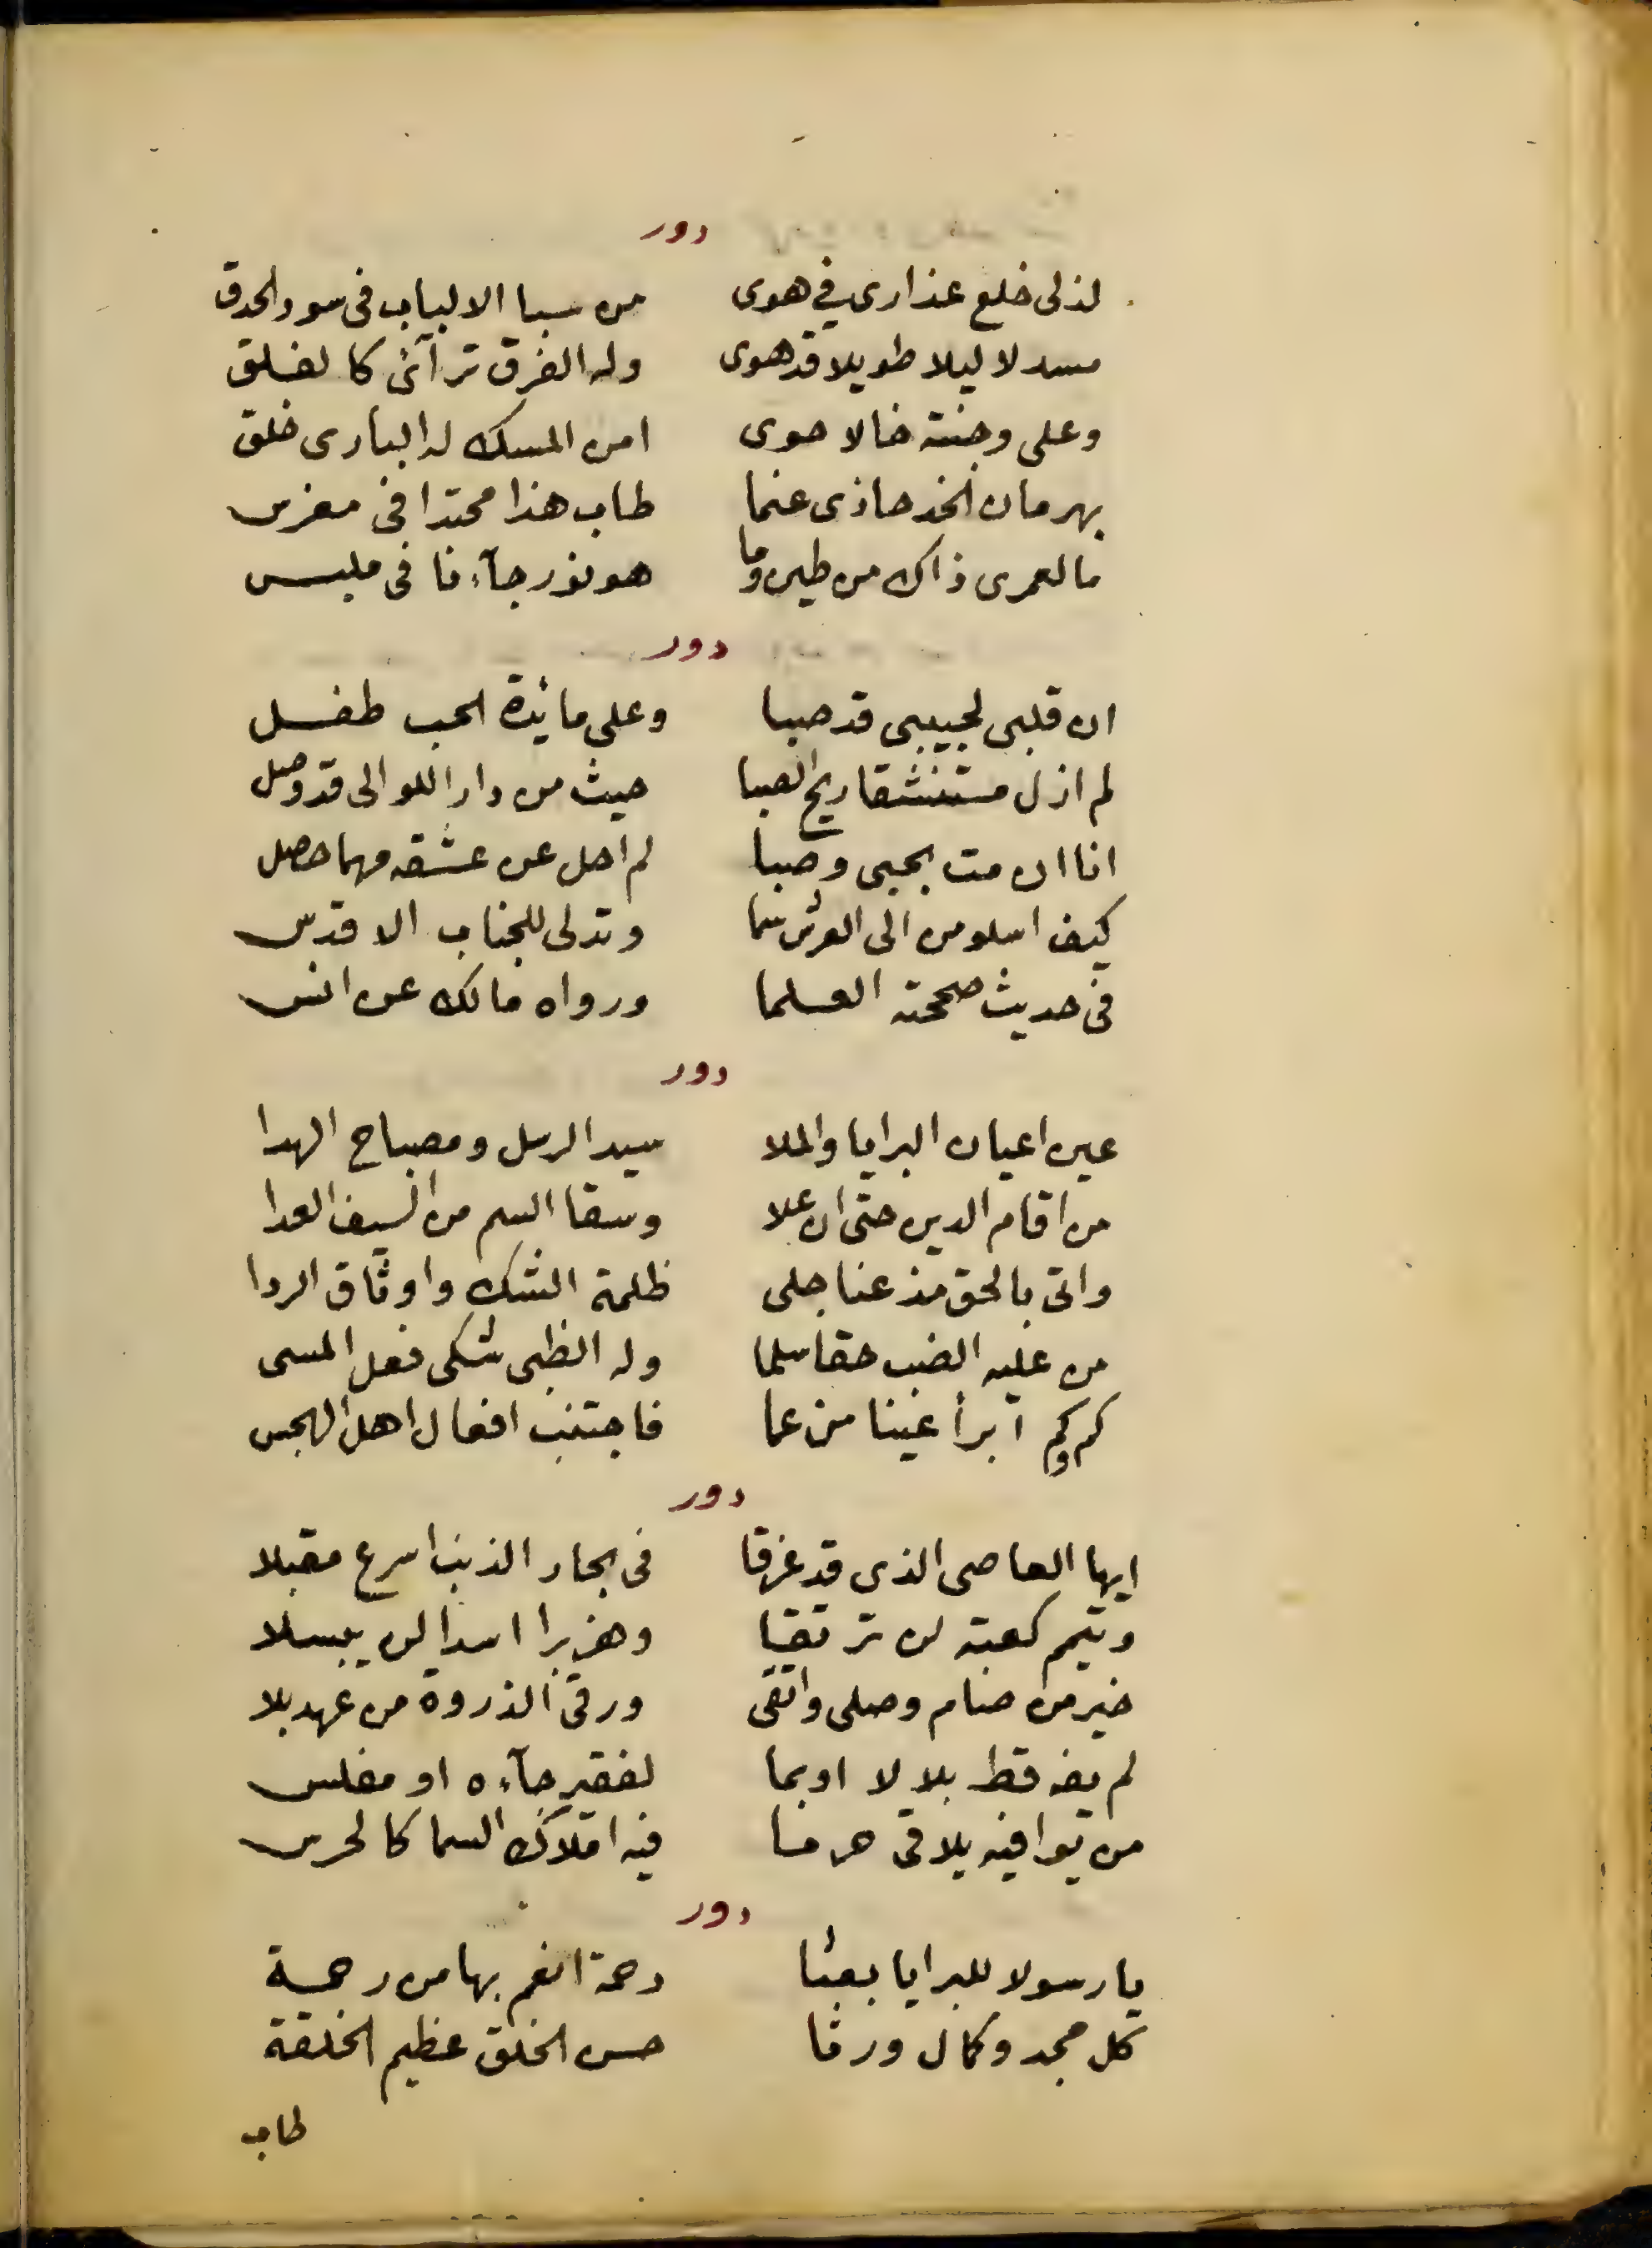 دور
لذ لى خلع عذارى في هوى من سبا الالباب فى سود الحدق
مسدلا ليلا طويلا قد هوى وله الفرق ترآئ كالفلق
وعلى وجنته خالا حوى امن المسك له البارى خلق
بهرمان الخد حاذى عنما طاب هذا محتدا فى مغرس
ما لعمرى ذاك من طين وما هو نور جآءنا فى ملبس
دور
ان قلبى لحبيبى قد صبا وعلى مائدة الحب طفل
لم ازل مستنشقا ريح الصبا حيث من دار اللوالى قد وصل
انا ان مت بحبى وصبا لم احل عن عشقه مهما حصل
كيف اسلو من الى العرش سما وتدلى للجناب الاقدس
فى حديث صححته العلما ورواه مالك عن انس
دور
عين اعيان البرايا والملا سيد الرسل ومصباح الهدا
من اقام الدين حتى ان علا وسقا السم من السيف العدا
واتى بالحق مذ عنا جلى ظلمة الشك واوثاق الردا
من عليه الضب حقا سلما وله الظبى شكى فعل المسى
كم وكم ابرأ عينا من عما فاجتنب افعال اهل الهجس
دور
ايها العاصى الذى قد غرقا فى بحار الذنب اسرع مقبلا
وتيمم كعبته لن ترتقيا وهزبرا اسدا لن يبسلا
خير من صام وصلى واتقى ورقى الذروة من عهد بلا
لم يفه قط بلا لا او بما لفقير جآءه او مفلس
من يوافيه يلاقى حرما فيه املاك السما كالحرس
دور
يا رسولا للبرايا بعثا رحمة انعم بها من رحمة
كل مجد وكمال ورثا حسن الخلق عظيم الخلقة
طاب